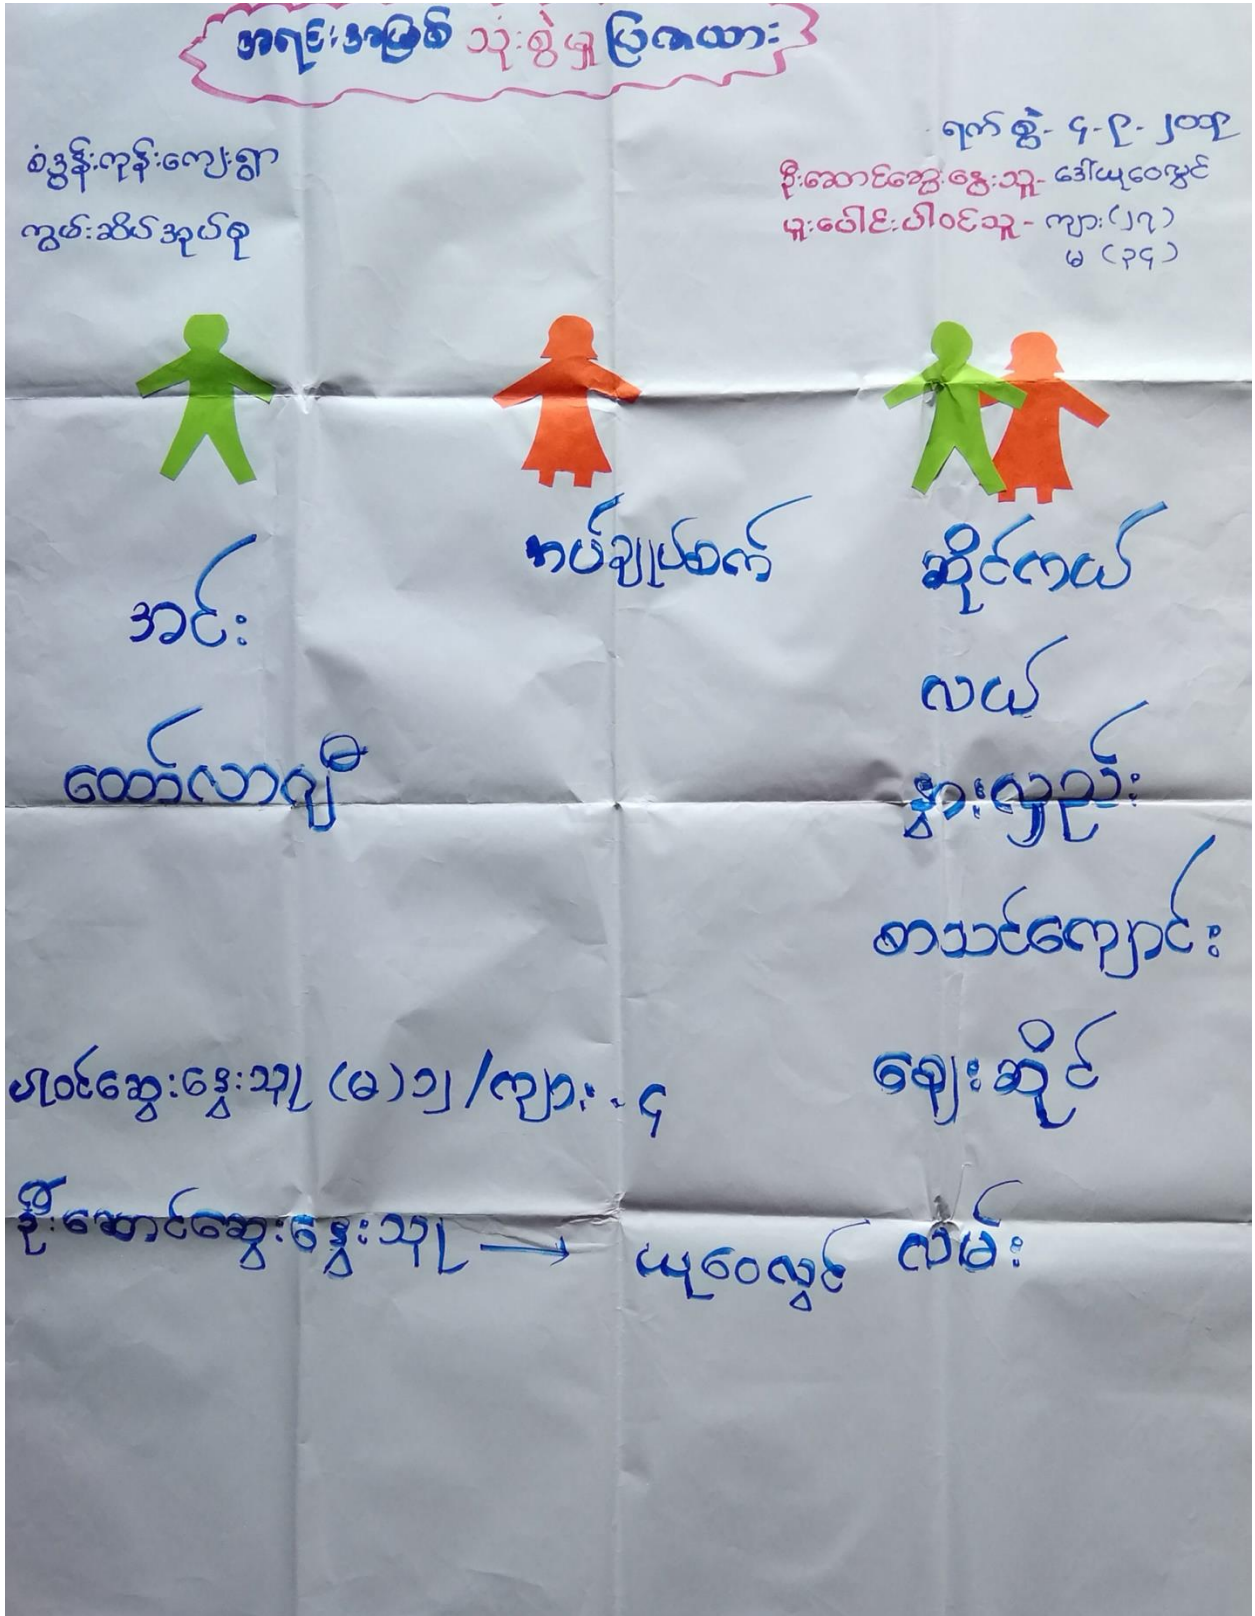 အရင်းအမြစ် သုံးစွဲမှု ပြဇယား
စံဒွန်းကုန်းကျေးရွာ
ကွမ်းဆိပ်အုပ်စု
ရက်စွဲ- ၄-၉-၂၀၁၉
ဦးဆောင်ဆွေးနွေးသူ- ဒေါ်ယုဝေလွင်
ပူးပေါင်းပါဝင်သူ- ကျား(၁၇)
မ (၃၄)
အင်း
ထော်လာဂျီ
အပ်ချုပ်စက်
ဆိုင်ကယ်
လယ်
နွားလှည်း
စာသင်ကျောင်း
ဈေးဆိုင်
လမ်း
ပါဝင်ဆွေးနွေးသူ (မ) ၁၂ /ကျား - ၄
ဦးဆောင်ဆွေးနွေးသူ → ယုဝေလွင်